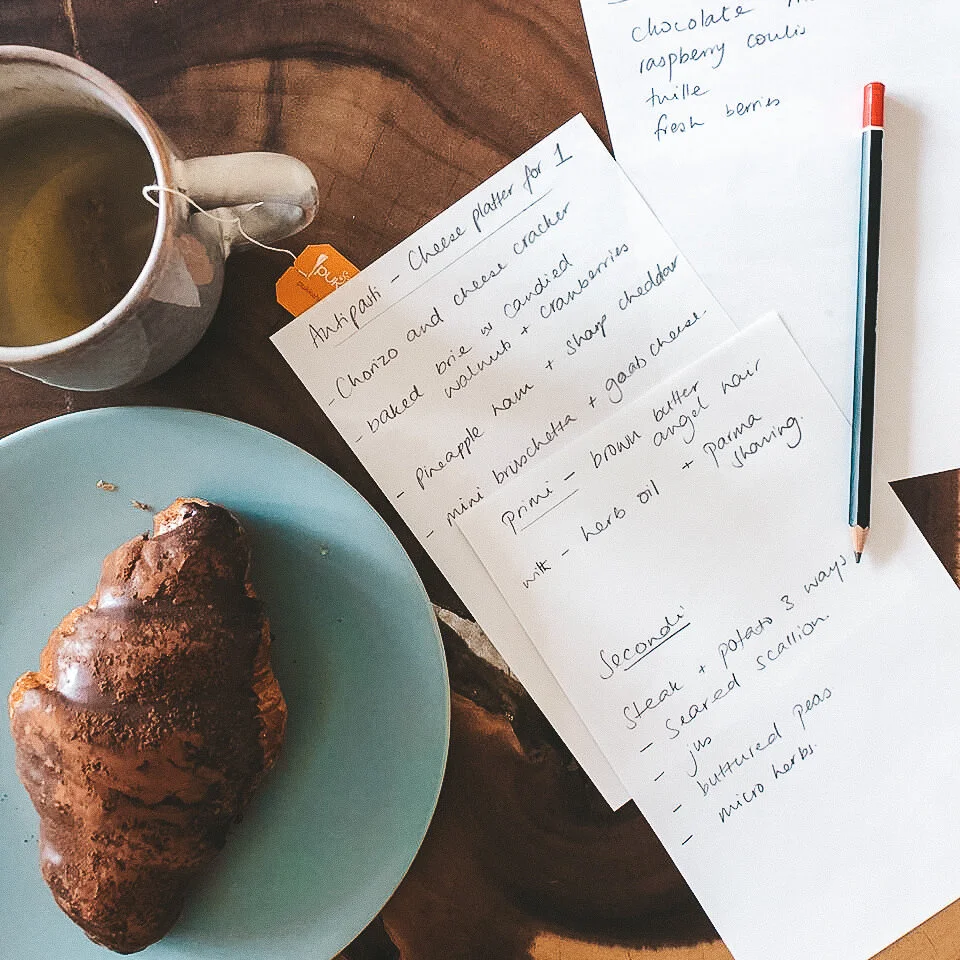 chocolate
raspberry coulis
tuille
fresh berries
pukka
Antipasti - Cheese platter for 1
- Chorizo and cheese cracker
- baked brie w candied
walnut + cranberries
- pineapple ham + sharp cheddar
- mini bruschetta + goats cheese.
Primi - brown butter
angel hair
with - herb oil + parma
shaving.
Secondi
Steak + potato 3 ways
- Seared scallion.
- jus
- buttured peas
- micro herbs.